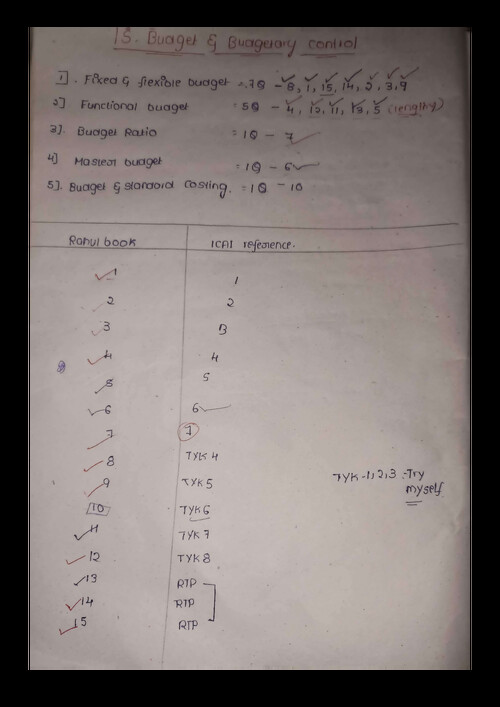 15. Budget & Budgetary control
1]. Fixed & flexible budget = 7Q - 8, 1, 15, 14, 2, 3, 9
2] Functional budget = 5Q - 4, 12, 11, 13, 5 (lengthy)
3]. Budget Ratio = 1Q - 7
4] Master budget = 1Q - 6
5]. Budget & standard costing. = 1Q - 10
Rahul book ICAI reference.
1 1
2 2
3 3
4 4
5 5
6 6
7 7
8 TYK 4
9 TYK 5
10 TYK 6
11 TYK 7
12 TYK 8
13 RTP
14 RTP
15 RTP
TYK -1,2,3 - Try
myself